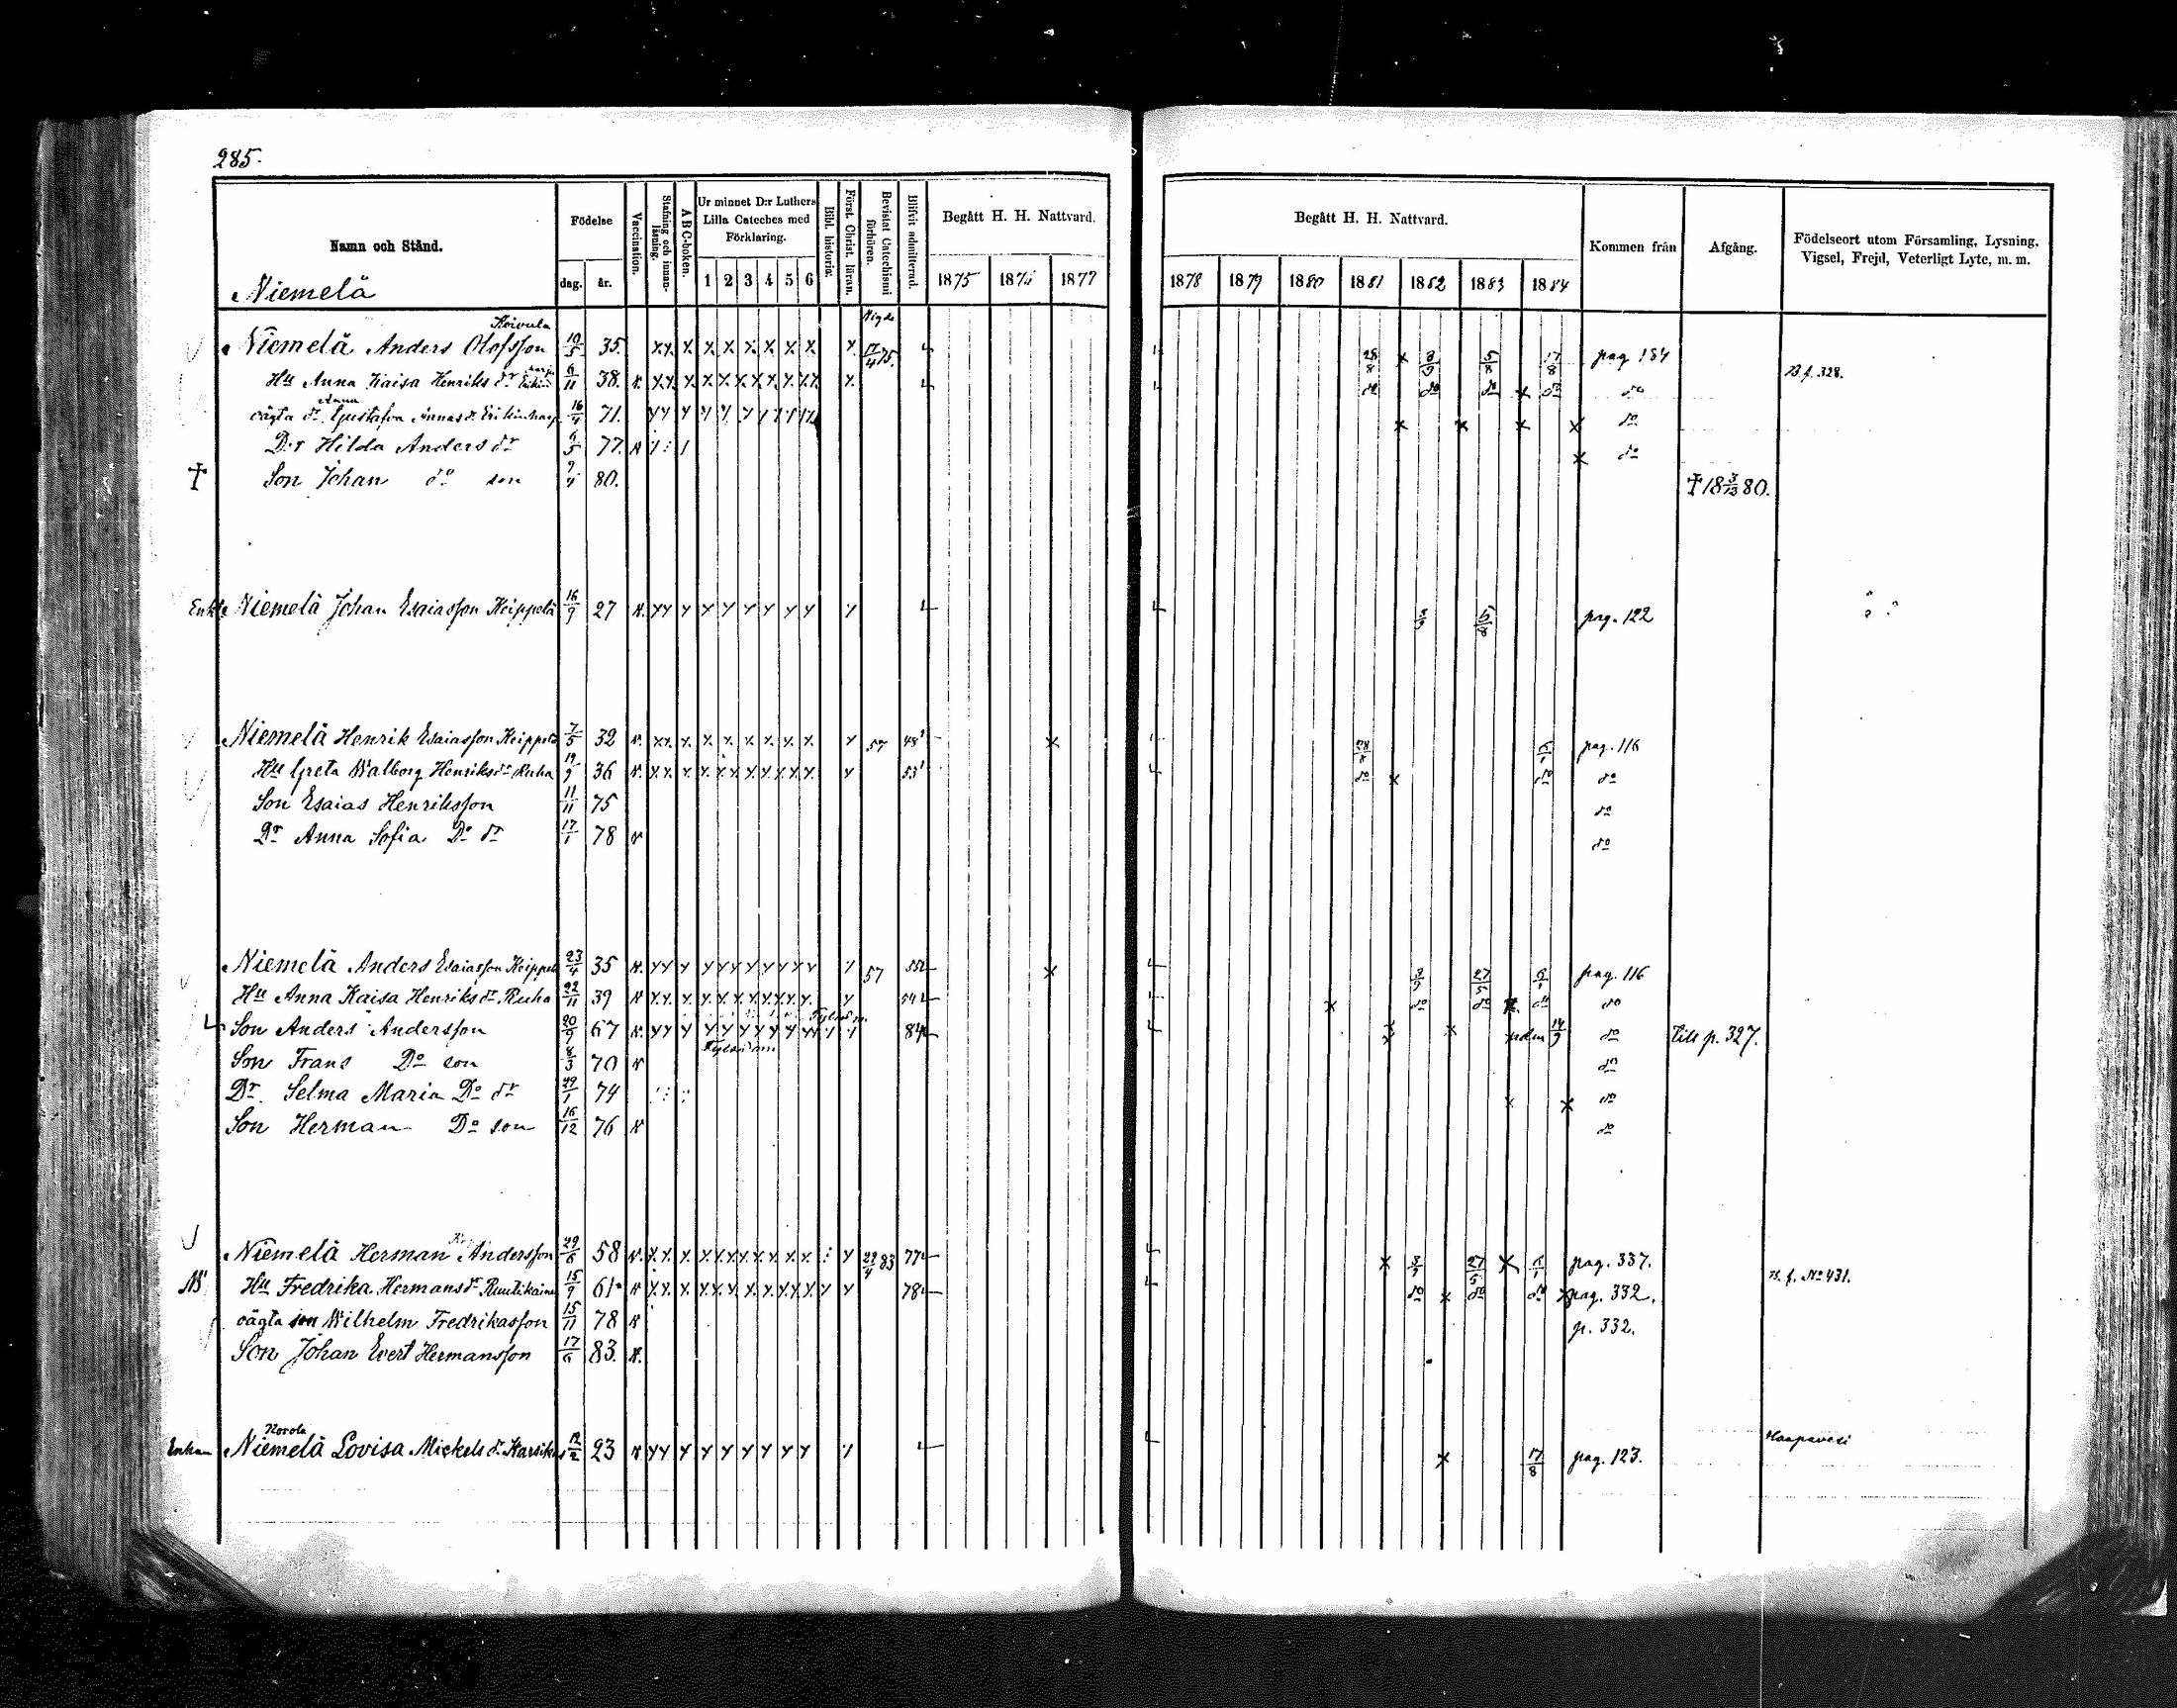 285.
Namn och Stånd. Födelse dag. år. Vaccination. Stafning och innanläsning. A B C-boken. Ur minnet D:r Luthers Lilla Cateches med Förklaring. 1 2 3 4 5 6 Bibl. historia. Först. Christ. läran. Bevistat Catechismi förhören. Blifvit admitterad. Begått H. H. Nattvard. 1875 1876 1877
Begått H. H. Nattvard. 1878 1879 1880 1881 1882 1883 1884 Kommen från Afgång. Födelseort utom Församling, Lysning, Vigsel, Frejd, Veterligt Lyte, m. m.
Niemelä
Koivula Vigde
Niemelä Anders Olofsson 19/5 35. 17/4 75. 28/8 3/9 5/8 17/8 pag 184
Hu Anna Kaisa Henriks dr 6/11 38. do do do do do B. f. 328.
Anna
oägta dr Gustafva Annas dr 16/4 71. do
D:r Hilda Anders dr 6/5 77. do
† Son Johan do son 9/4 80. † 18 3/12 80.
Enkl. Niemelä Johan Esaiasson Keippelä 16/9 27 3/9 5/8 pag. 122
Niemelä Henrik Esaiasson Keippelä 7/5 32 57 28/8 pag. 116
Hu Greta Walborg Henriks dr Ruha 19/9 36 do do do
Son Esaias Henriksson 11/11 75 do
Dr Anna Sofia Do dr 17/1 78 do
Niemelä Anders Esaiasson Keippelä 23/4 35 57 3/9 27/5 6/1 pag. 116
Hu Anna Kaisa Henriks dr Ruha 22/11 39 do do do do
Son Anders Andersson 20/9 67 84 adm 14/9 do Till p. 327.
Son Frans Do son 8/3 70 do
Dr. Selma Maria Do dr 29/1 74 do
Son Herman Do son 16/12 76 do
Niemelä Herman Andersson 29/6 58 22/4 83 77 3/9 27/5 6/1 pag. 337.
Hu Fredrika Hermans dr 15/9 61 78 do do do pag. 332. B. f. No 431.
oägta son Wilhelm Fredrikasson 15/11 78 p. 332.
Son Johan Evert Hermansson 17/6 83.
Norola
Enkan Niemelä Lovisa Mickels dr Karsikas 12/2 23 17/8 pag. 123. Haapavesi